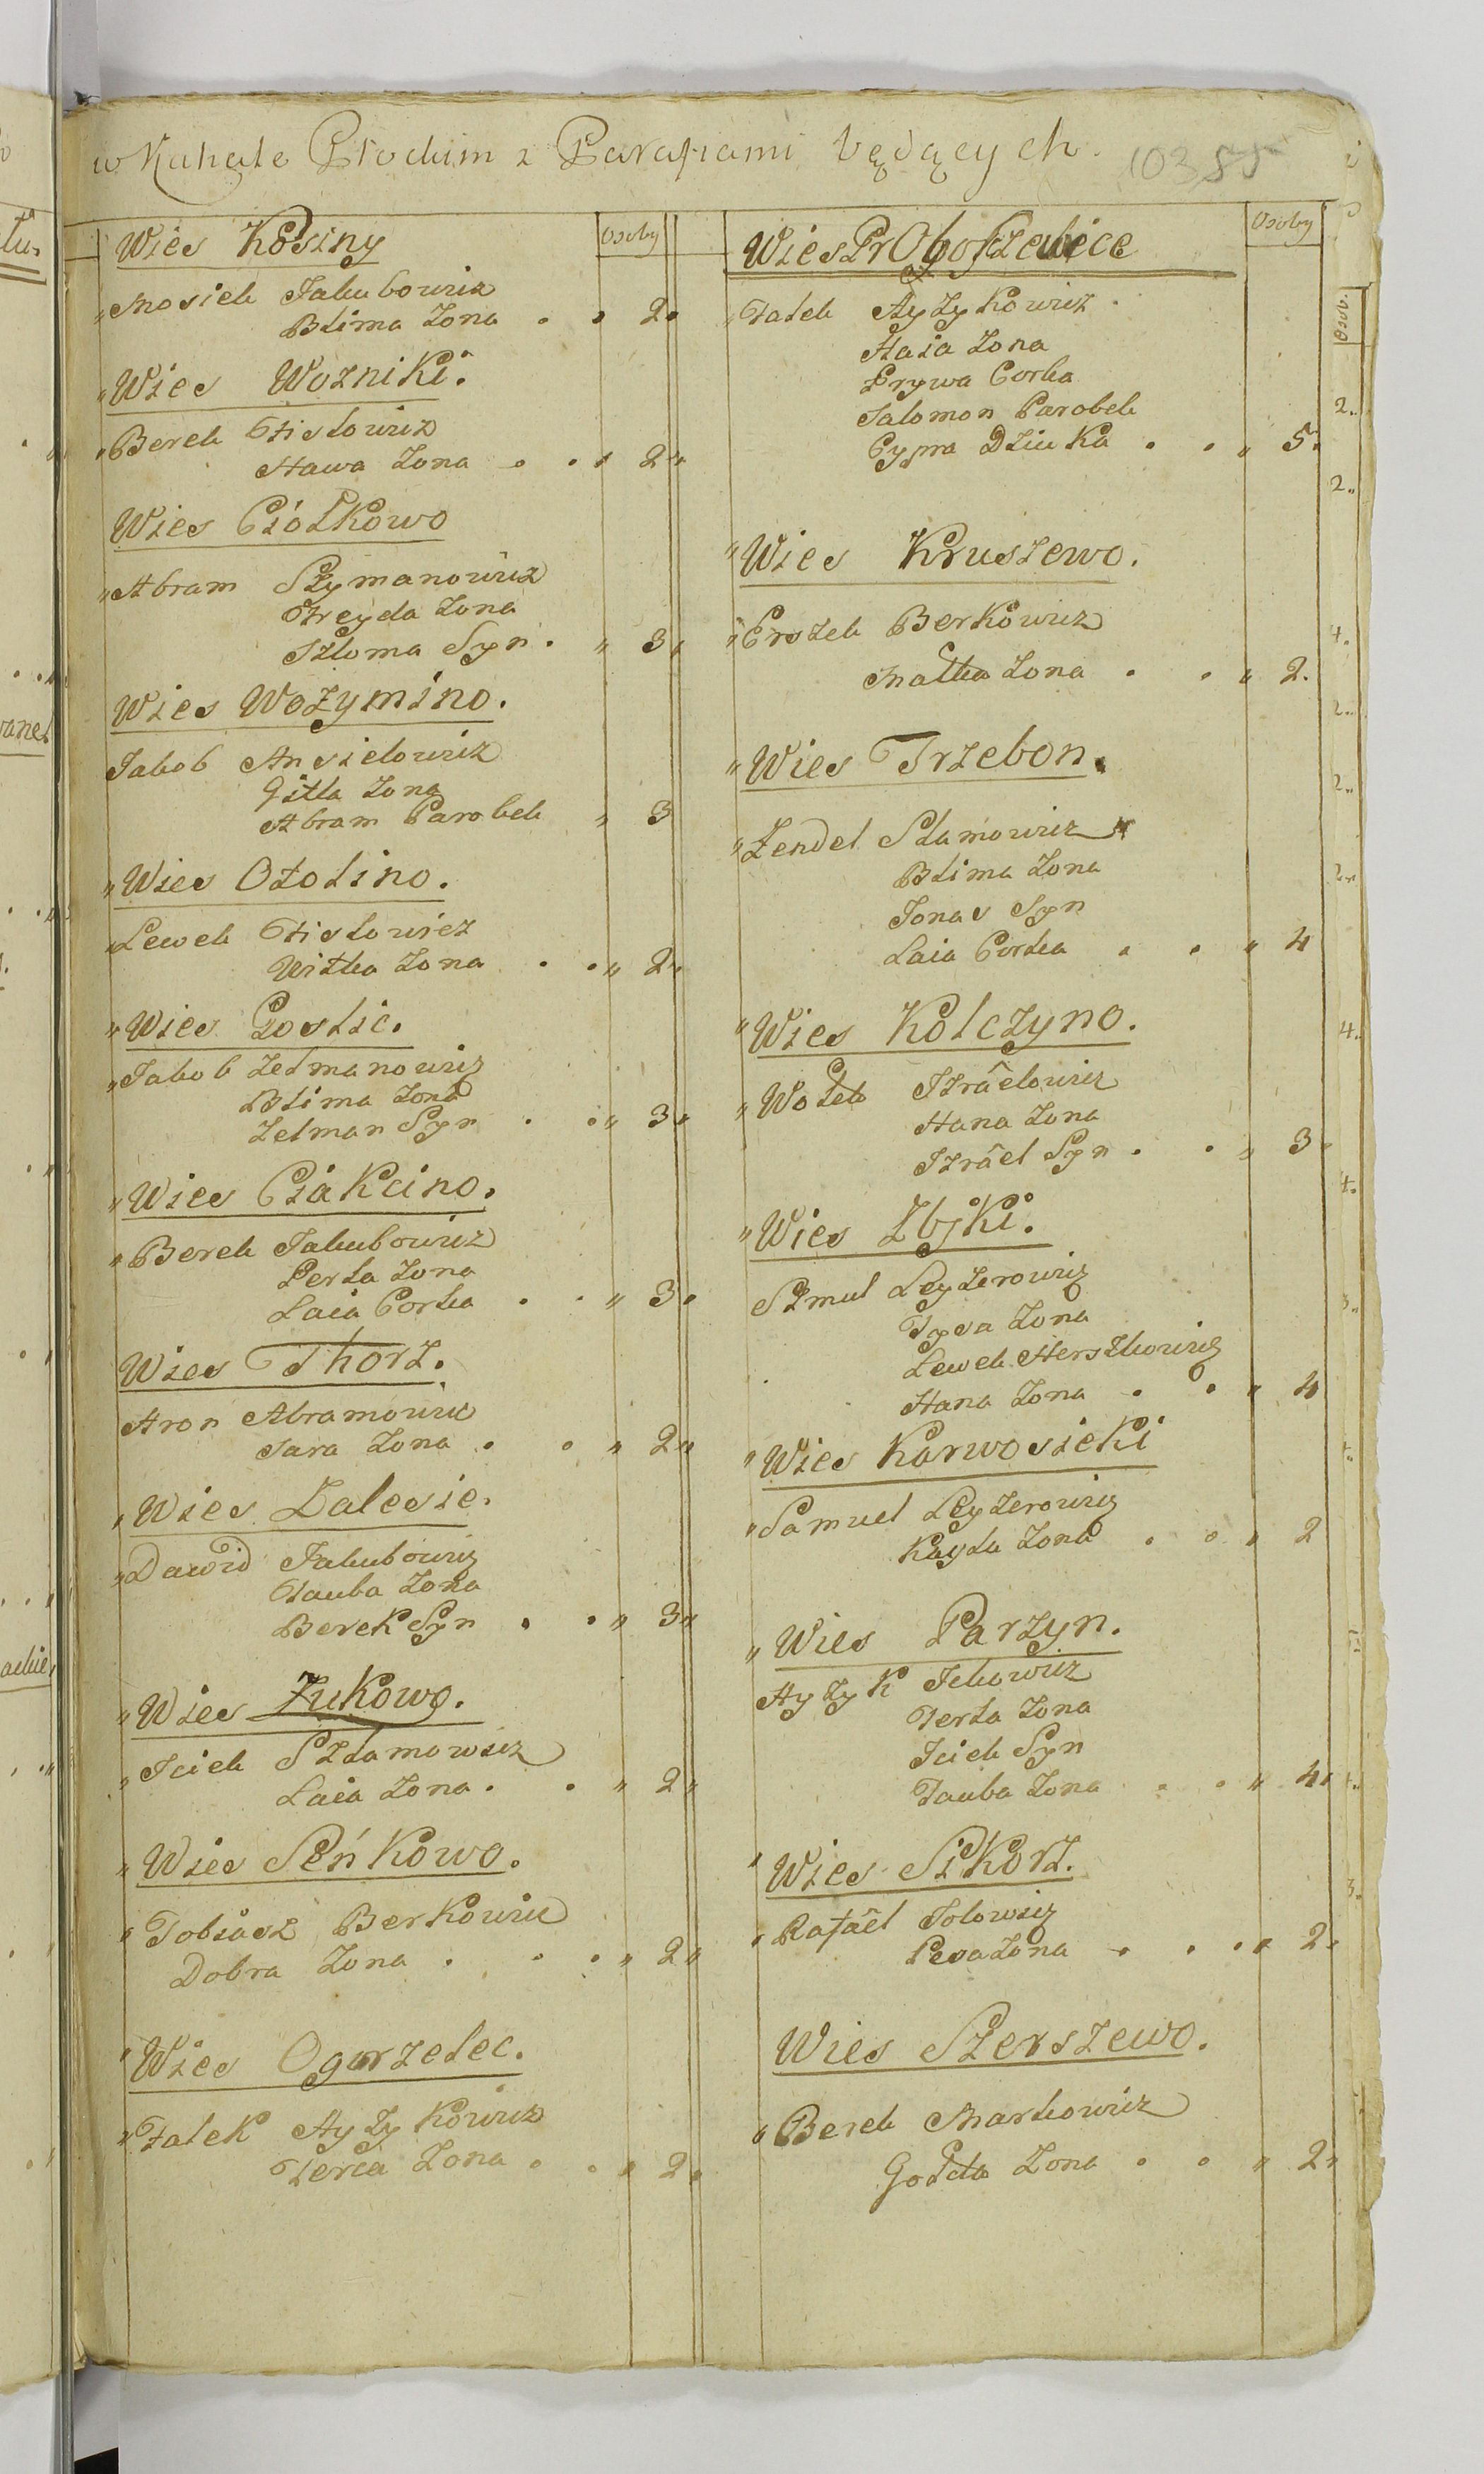 w Kahale Płockim z Parafiami będących.
10385
Wies Kosiny
Osoby
Mosiek Jakubowicz
Blima Zona 2
Wies Wozniki.
Berek Fislowicz
Hawa Zona 2
Wies Ciołkowo
Abram Szymanowicz
Freyda Zona
Szloma Syn 3
Wies Wozymino.
Jakob Anszelowicz
Gitla Zona
Abram Parobek 3
Wies Ożolino.
Lewek Fislowicz
Witka Zona 2
Wies Goslic.
Jakob Zelmanowicz
Blima Zona
Zelman Syn 3
Wies Ciakcino.
Berek Jakubowicz
Perla Zona
Laia Corka 3
Wies Thorz.
Aron Abramowicz
Sara Zona 2
Wies Zalesie.
Dawid Jakubowicz
Tauba Zona
Berek Syn 3
Wies Zukowo.
Icick Szlamowicz
Laia Zona 2
Wies Seńkowo.
Tobiasz Berkowicz
Dobra Zona 2
Wies Ogorzelec.
Falek Ayzykowicz
Perca Zona 2
Wies PrOboszczewice
Osoby
Falek Ayzykowicz
Haia Zona
Prywa Corka
Salomon Parobek
Cypra Dziwka 5
Wies Kruszewo.
Erszek Berkowicz
Małka Zona 2.
Wies Trzebon.
Zendel Slamowicz
Blima Zona
Jonas Syn
Laia Corka 4
Wies Kolczyno.
Wołek Izraêlowicz
Hana Zona
Izraêl Syn 3
Wies Zbjki.
Szmul Leyzerowicz
Tysa Zona
Lewek Herszkowicz
Hana Zona 4
Wies Karwosieki
Samuel Leyzerowicz
Kayla Zona 2
Wies Parzyn.
Ayzyk Ickowicz
Perla Zona
Icick Syn
Tauba Zona 4
Wies Sikorz.
Rafaêl Jolowicz
Pesa Zona 2
Wies Szerszewo.
Berek Markowicz
Gołda Zona 2